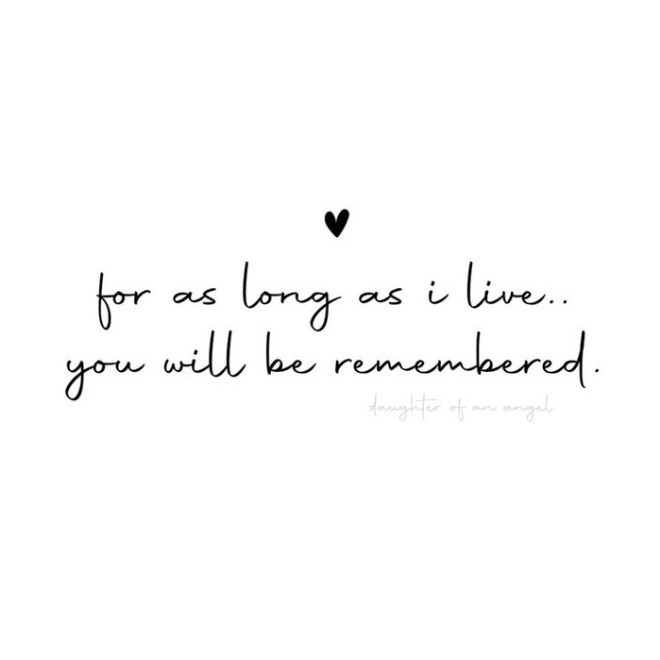 for as long as i live..
you will be remembered.
daughter of an angel